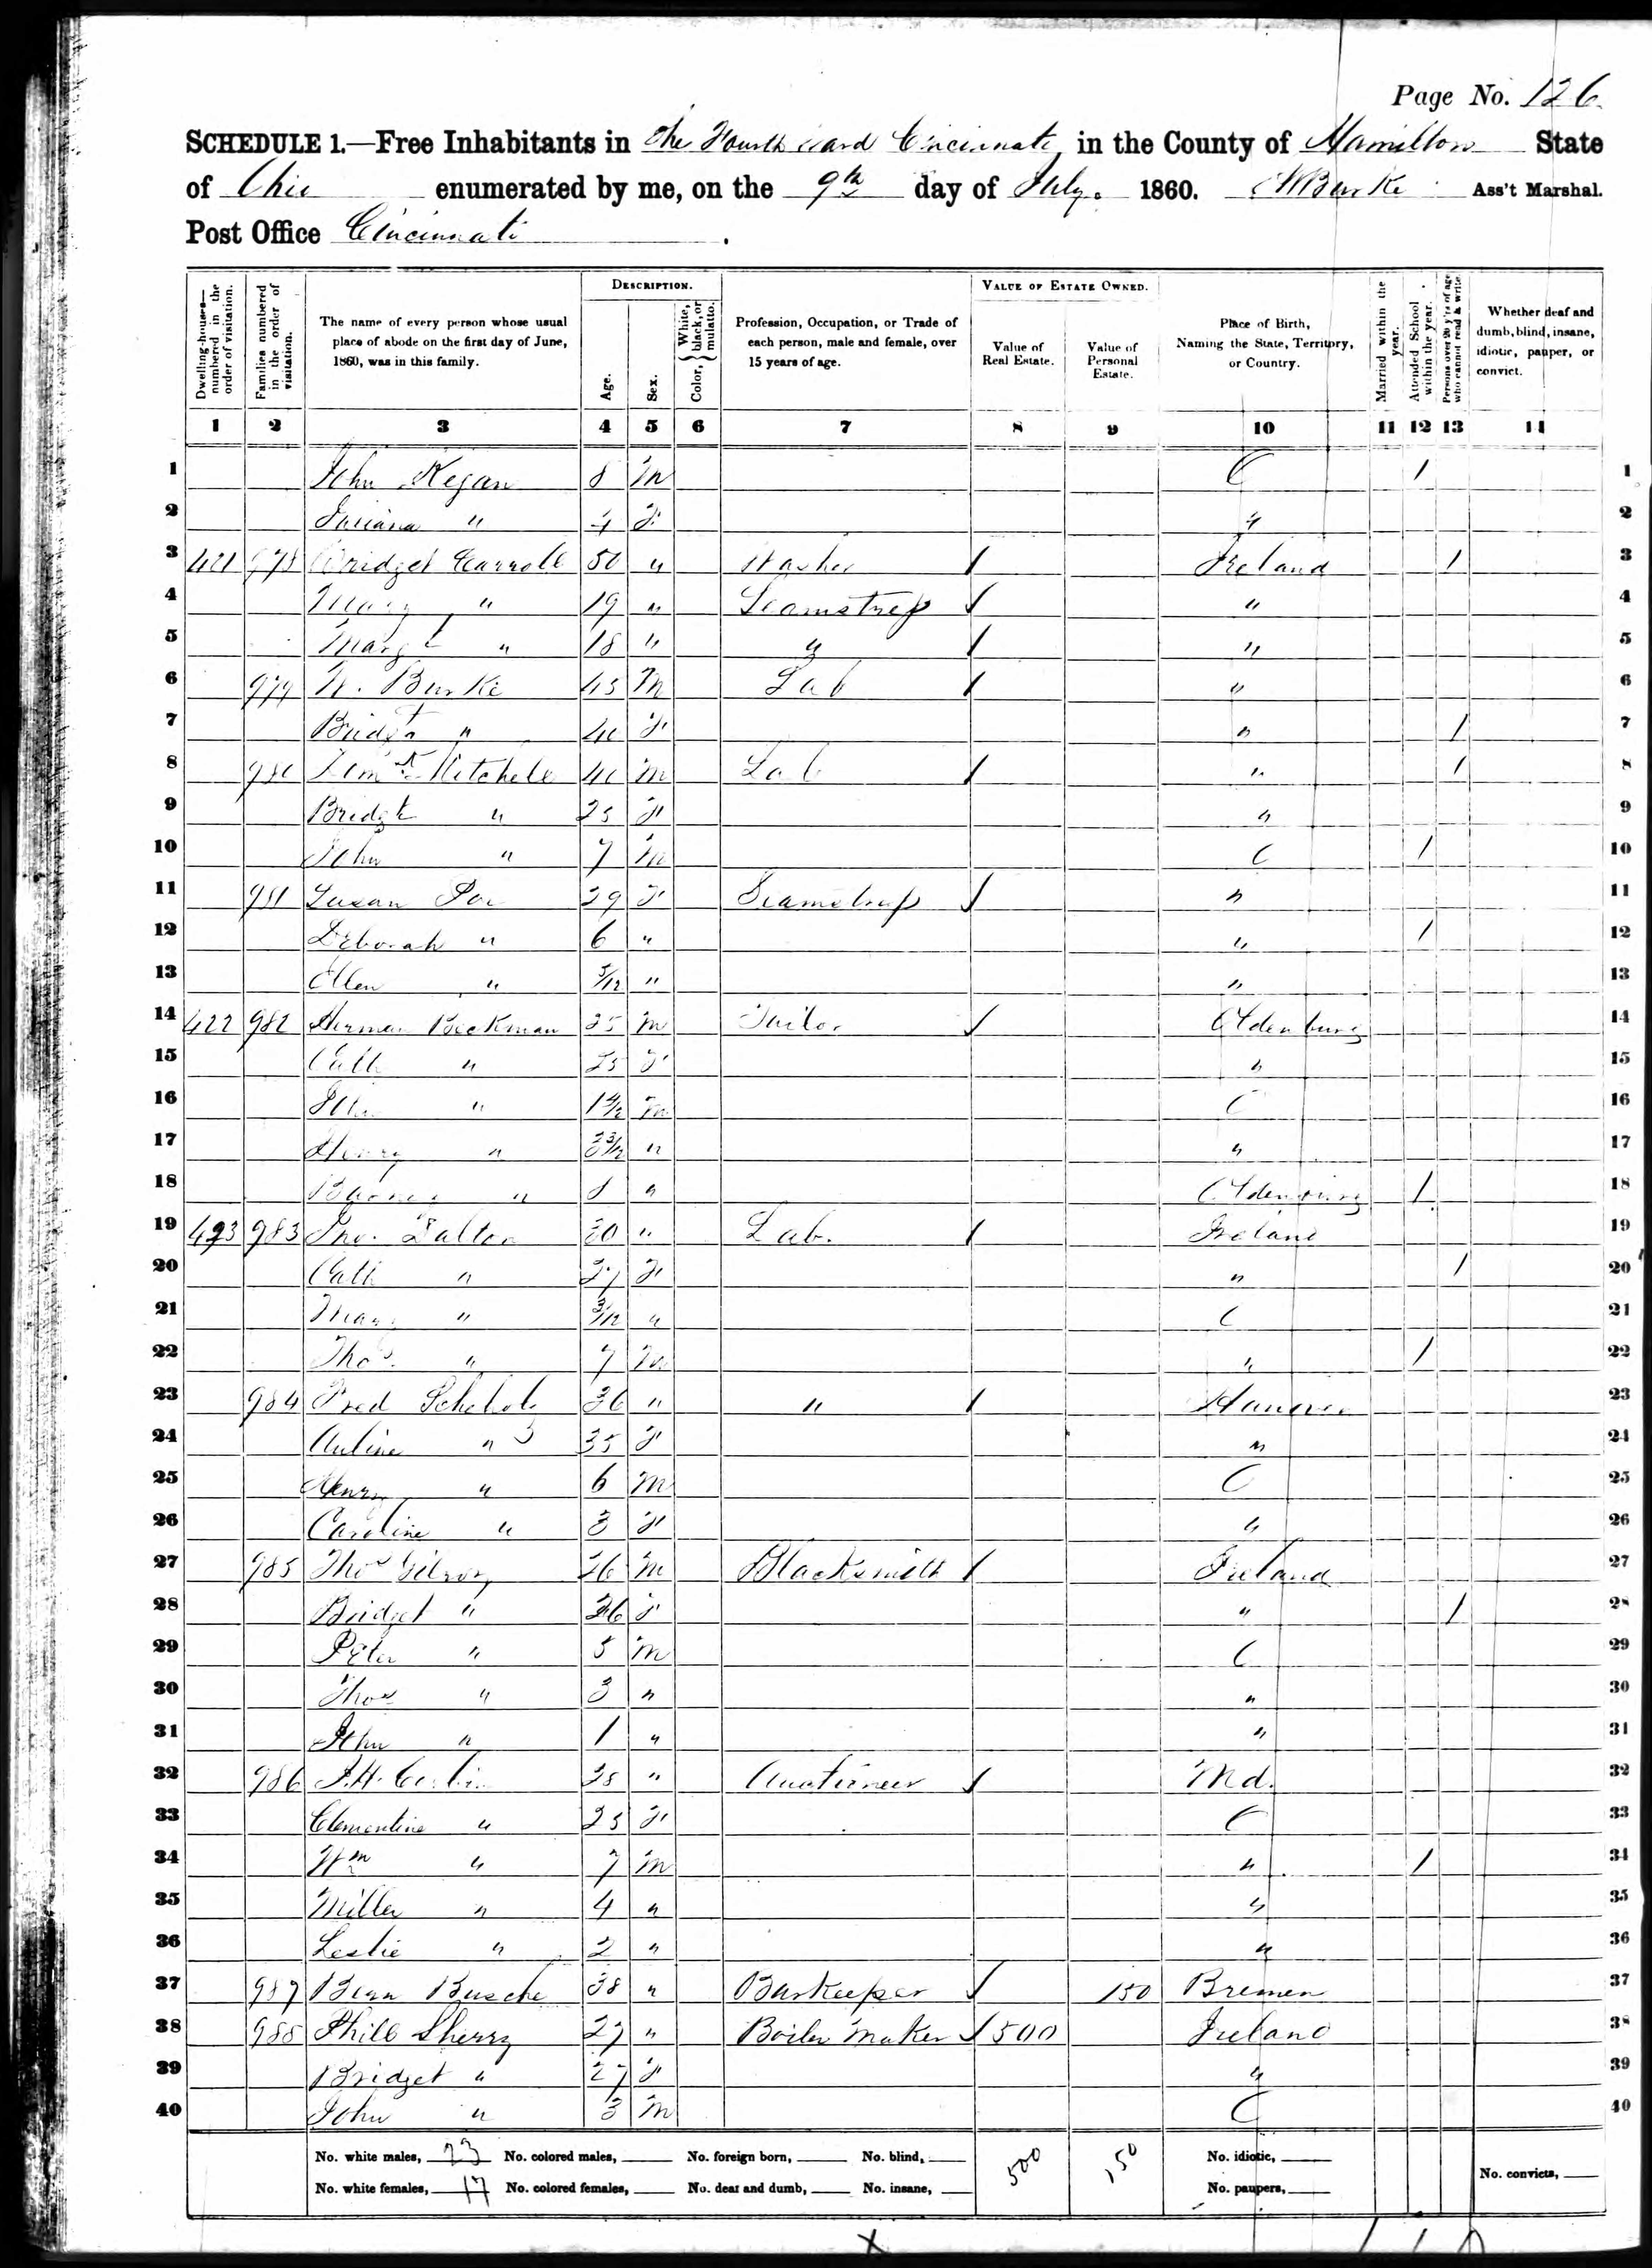 Page No. 126
SCHEDULE 1.—Free Inhabitants in The Fourth Ward Cincinnati in the County of Hamilton State
of Ohio enumerated by me, on the 9th day of July. 1860. Burke Ass't Marshal.
Post Office Cincinnati .
DESCRIPTION. VALUE OF ESTATE OWNED.
Dwelling-houses—numbered in the order of visitation.
Families numbered in the order of visitation.
The name of every person whose usual place of abode on the first day of June, 1860, was in this family.
Age.
Sex.
Color, { White, black, or mulatto.
Profession, Occupation, or Trade of each person, male and female, over 15 years of age.
Value of Real Estate.
Value of Personal Estate.
Place of Birth, Naming the State, Territory, or Country.
Married within the year.
Attended School within the year.
Persons over 20 y'rs of age who cannot read & write.
Whether deaf and dumb, blind, insane, idiotic, pauper, or convict.
1 2 3 4 5 6 7 8 9 10 11 12 13 14
1 John Kegan 8 M O 1 1
2 " 4 F " 2
3 421 978 Bridget Carroll 50 " Washer / Ireland 1 3
4 Mary " 19 " Seamstress / " 4
5 Margt " 18 " " / " 5
6 979 W. Burke 45 M Lab / " 6
7 Bridgt " 40 F " 1 7
8 980 Mitchell 40 M Lab / " 1 8
9 Bridgt " 25 F " 9
10 John " 7 M O 1 10
11 981 Susan 29 F Seamstress / " 11
12 Deborah " 6 " " 1 12
13 Ellen " 5/12 " " 13
14 422 982 Herman Beckman 25 M Tailor / Oldenburg 14
15 Cath " 25 F " 15
16 John " 1 M O 16
17 Henry " " " 17
18 Barney " 8 " Oldenburg 1 18
19 423 983 Jno. Dalton 30 " Lab. / Ireland 19
20 Cath " 27 F " 1 20
21 Mary " 3/12 " O 21
22 Thos. " 7 M " 1 22
23 984 Fred 36 " " / Hanover 23
24 " 35 F " 24
25 Henry " 6 M O 25
26 Caroline " 3 F " 26
27 985 Thos Gilroy 26 M Blacksmith / Ireland 27
28 Bridget " 26 F " 1 28
29 Peter " 5 M O 29
30 Thos " 3 " " 30
31 John " 1 " " 31
32 986 J.H. 28 " Auctioneer / Md. 32
33 Clementine " 25 F O 33
34 Wm " 7 M " 1 34
35 Miller " 4 " " 35
36 Leslie " 2 " " 36
37 987 Busche 38 " Barkeeper / 150 Bremen 37
38 988 Phill Sherry 27 " Boiler Maker / 500 Ireland 38
39 Bridget " 27 F " 39
40 John " 3 M O 40
No. white males, 23 No. colored males, No. foreign born, No. blind, 500 150 No. idiotic,
No. white females, 17 No. colored females, No. deaf and dumb, No. insane, No. paupers, No. convicts,